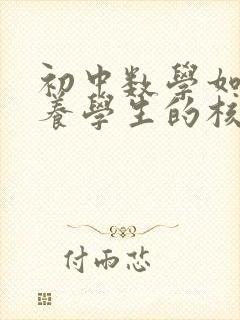 初中数學如
養學生的核
付雨芯